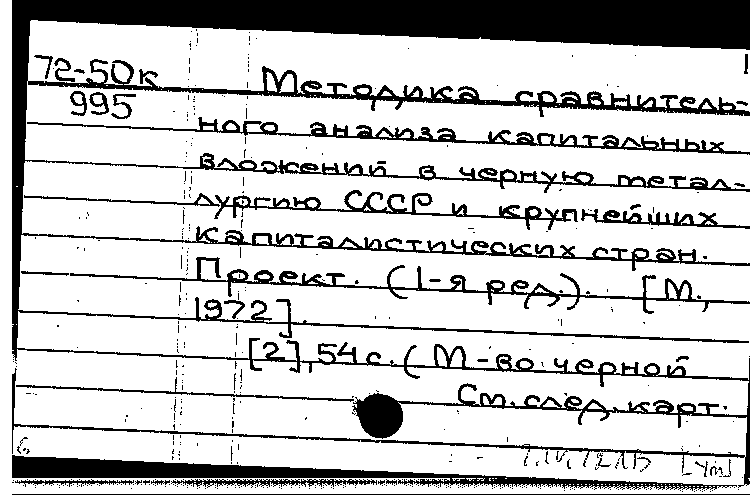 72-50к
995
Методика сравнитель-
ного анализа капитальных
вложений в черную метал-
лургию СССР и крупнейших
капиталистических стран.
Проект. (1-я ред.). [М.,
1972].
[2], 54 с. (М-во черной
См. след. карт.